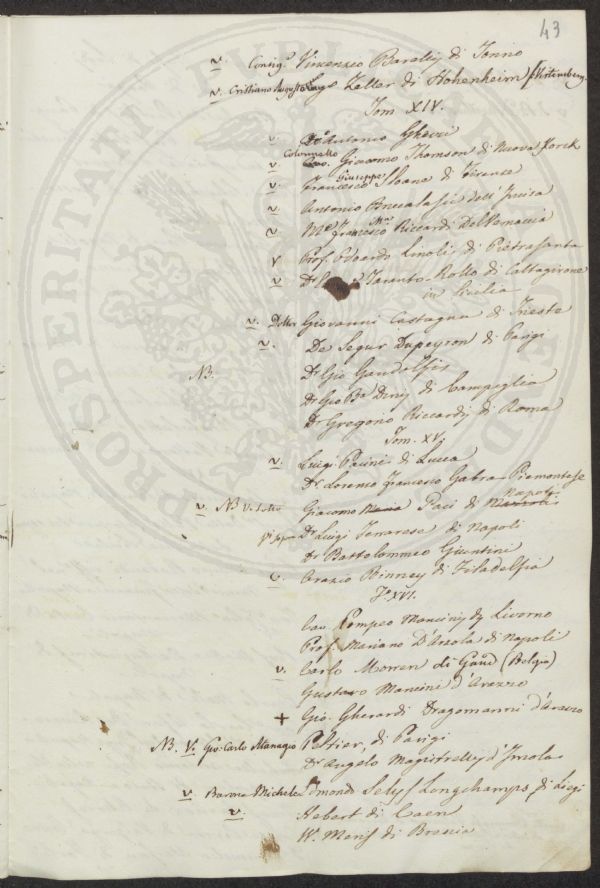 43
v. Consig.e Vincenzo Barelij di Torino
v. Cristiano Augusto Zeller di Hohenheim (Wirtemberg
Tom XIV.
v Dr Antonio Ghezzi
v Colonnello Giacomo Thomson di Nuova Yorck
v Francesco Giuseppe Sloane di Firenze
v Antonio Brucalassi dell'Incisa
v Me Francesco Ma Riccardi Del Vernaccia
v Prof. Odoardo Linolij di Pietrasanta
v Dr Taranto Rollo di Caltagirone
in Sicilia
v. Dotter Giovanni Castagna di Trieste
v. De Segur Dupeyron di Parigi
NB. Dr Gio Gandolfis
Dr Gio Ba Denij di Campiglia
Dr Gregorio Riccardij di Roma
Tom. XV.
v. Luigi Pacini di Lucca
Dr. Lorenzo Francesco Gabra Piemontese
v. NB V. Giacomo Maria Paci di Napoli
Dr Luigi Tenarese di Napoli
Dr Bartolommeo Giuntini
v. Orazio Binney di Filadelfia
T. XVI.
Cav Pompeo Mancinij di Livorno
Prof. Mariano D'Ayola di Napoli
v. Carlo Morren di Gand (Belgio)
Gustavo Mancini d'Arezzo
+ Gio. Gherardi Dragomanni d'Arezzo
NB. V. Gio: Carlo Atanagio Peltier, di Parigi
Dr Angelo Magistrelij d'Imola
v Barone Michele Edmondo Selys Longchamps, di Liegi
v. Hebert di Caen
W. Menis di Brescia
PROSPERITATI PVBLICAE